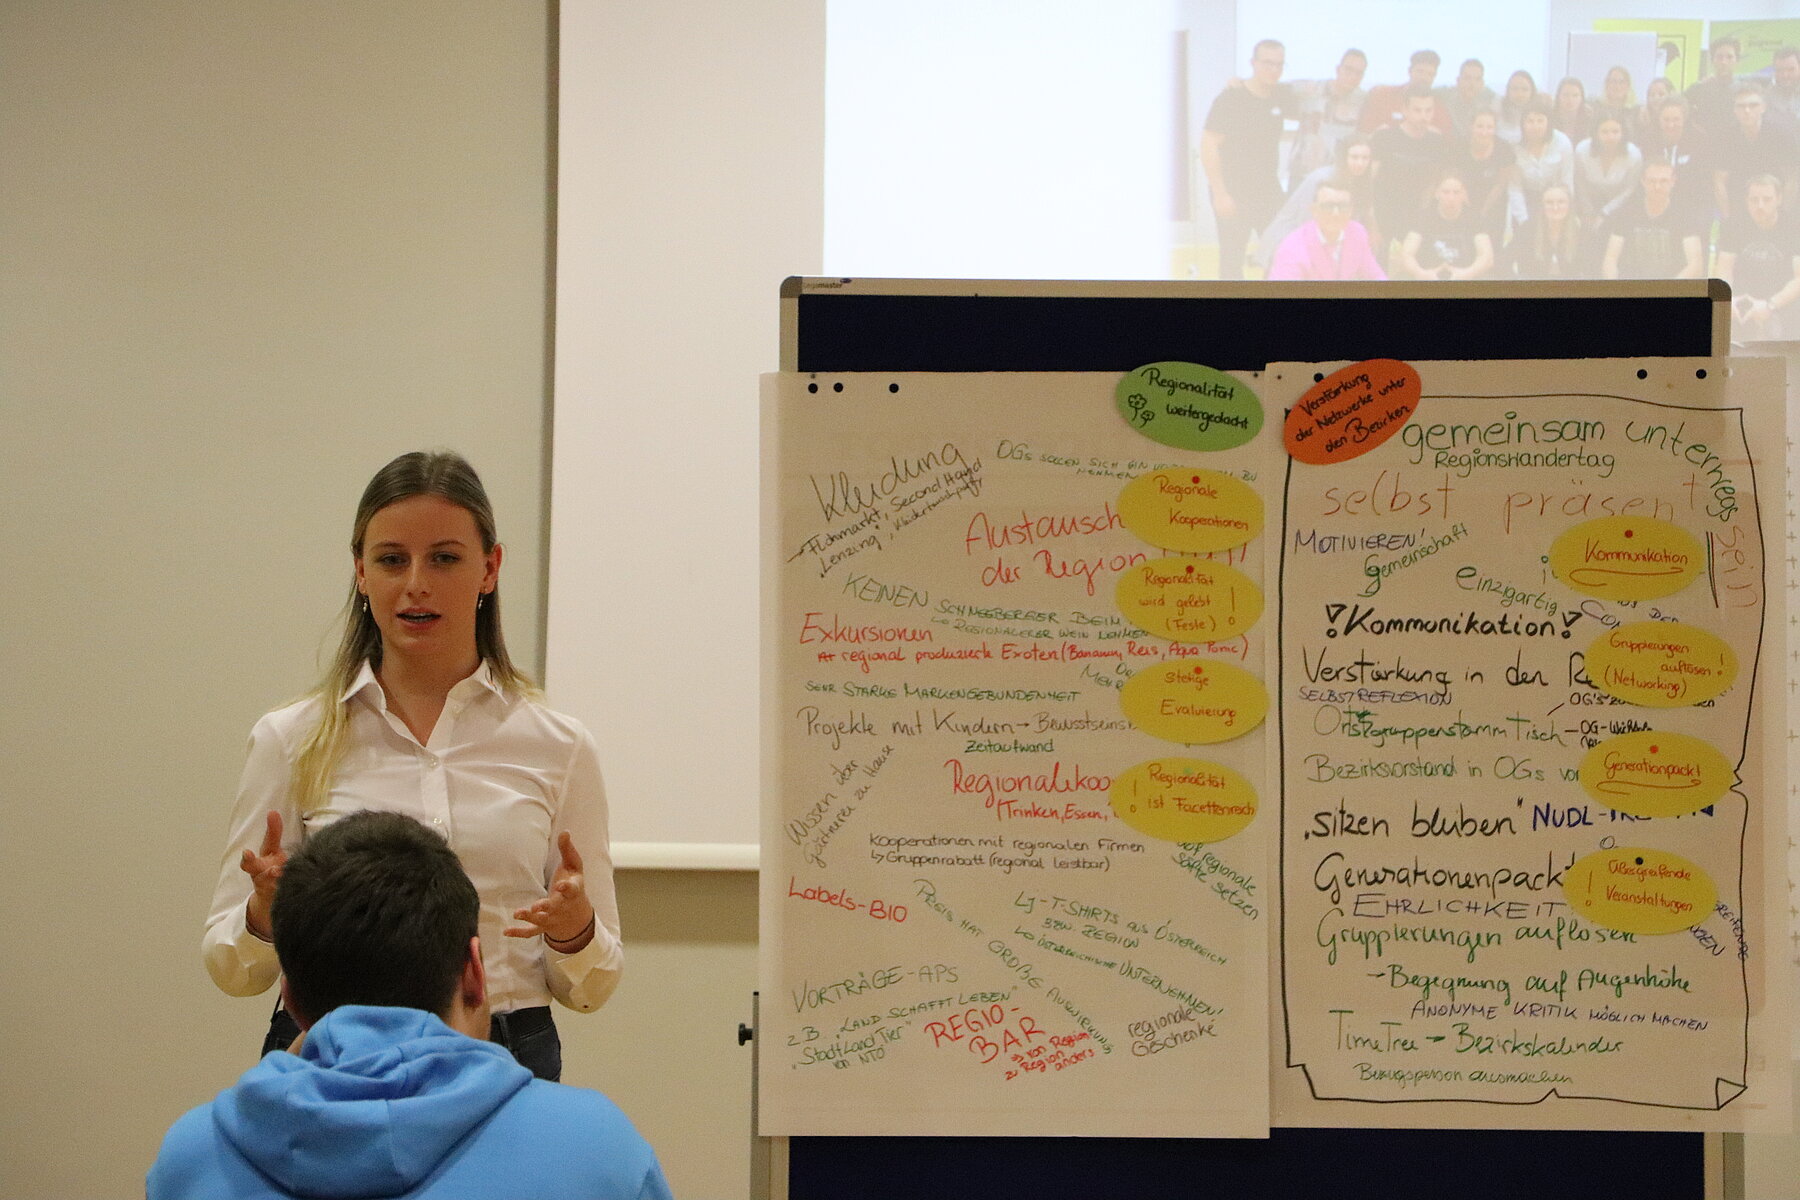 Regionalität
weitergedacht
Kleidung
Flohmarkt, Second Hand
"Lenzing", Kleidertauschparty
OGs SOLLEN SICH EIN
NEHMEN
Regionale
Kooperationen
Austausch
der Region
Regionalität
wird gelebt !
(Feste)
KEINEN SCHNEEBERGER BEIM
↳ REGIONALERER WEIN NEHMEN
Exkursionen
regional produzierte Exoten (Bananen, Reis, Aqua Tonic)
SEHR STARKE MARKENGEBUNDENHEIT
stetige
Evaluierung
Projekte mit Kindern → Bewusstseins
Zeitaufwand
Wissen über
Gärtnerei zu Hause
Regionaleko
(Trinken, Essen,
Regionalität
! ist Facettenreich
Kooperationen mit regionalen Firmen
↳ Gruppenrabatt (regional leistbar)
auf regionale
Säfte setzen
Labels-BIO
PREIS HAT GROßE AUSWIRKUNG
LJ-T-SHIRTS aus ÖSTERREICH
BZW. REGION
↳ ÖSTERREICHISCHE UNTERNEHMEN!
VORTRÄGE-APS
z.B. "LAND SCHAFFT LEBEN"
"StadtLandTier"
von NTÖ
REGIO-
BAR
von Region
zu Region
anders
regionale
Geschenke
Verstärkung
der Netzwerke unter
den Bezirken
gemeinsam unterwegs
Regionswandertag
selbst präsent sein
MOTIVIEREN!
Gemeinschaft
einzigartig
Kommunikation
!Kommunikation!
Gruppierungen
auflösen!
(Networking)
Verstärkung in den
SELBSTREFLEXION
Ortsgruppenstammtisch
Bezirksvorstand in OGs
Generationpackt
"sitzen bleiben"
Generationenpackt
EHRLICHKEIT
Übergreifende
! Veranstaltungen
Gruppierungen auflösen
→ Begegnung auf Augenhöhe
ANONYME KRITIK MÖGLICH MACHEN
TimeTree → Bezirkskalender
Bezugsperson ausmachen